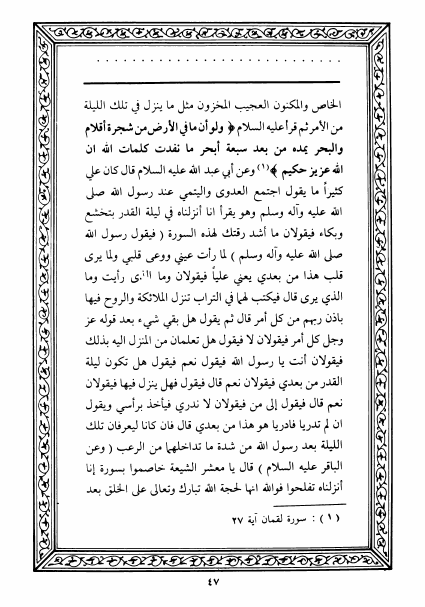 الخاص والمكنون العجيب المخزون مثل ما ينزل في تلك الليلة
من الأمر ثم قرأ عليه السلام ﴿ ولو أن ما في الأرض من شجرة أقلام
والبحر يمده من بعد سبعة أبحر ما نفدت كلمات الله ان
الله عزيز حكيم ﴾(١) وعن أبي عبد الله عليه السلام قال كان علي
كثيراً ما يقول اجتمع العدوى واليتمي عند رسول الله صلى
الله عليه وآله وسلم وهو يقرأ انا أنزلناه في ليلة القدر بتخشع
وبكاء فيقولان ما أشد رقتك لهذه السورة ( فيقول رسول الله
صلى الله عليه وآله وسلم ) لما رأت عيني ووعى قلبي ولما يرى
قلب هذا من بعدي يعني علياً فيقولان وما رأيت وما
الذي يرى قال فيكتب لهما في التراب تنزل الملائكة والروح فيها
باذن ربهم من كل أمر قال ثم يقول هل بقي شيء بعد قوله عز
وجل كل أمر فيقولان لا فيقول هل تعلمان من المنزل اليه بذلك
فيقولان أنت يا رسول الله فيقول نعم فيقول هل تكون ليلة
القدر من بعدي فيقولان نعم قال فيقول فهل ينزل فيها فيقولان
نعم قال فيقول إلى من فيقولان لا ندري فيأخذ برأسي ويقول
ان لم تدريا فادريا هو هذا من بعدي قال فان كانا ليعرفان تلك
الليلة بعد رسول الله من شدة ما تداخلهما من الرعب ( وعن
الباقر عليه السلام ) قال يا معشر الشيعة خاصموا بسورة إنا
أنزلناه تفلحوا فوالله انها لحجة الله تبارك وتعالى على الخلق بعد
(١) : سورة لقمان آية ٢٧
٤٧